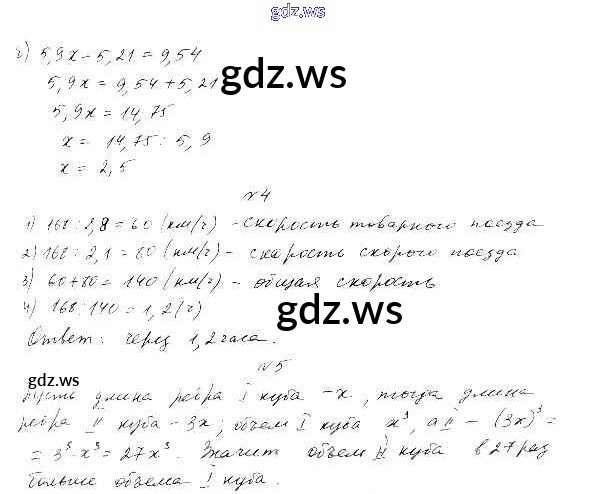 gdz.ws
г) 5,9x - 5,21 = 9,54
5,9x = 9,54 + 5,21
gdz.ws
5,9x = 14,75
x = 14,75 : 5,9
x = 2,5
№4
1) 168 : 2,8 = 60 (км/г) - скорость товарного поезда
2) 168 : 2,1 = 80 (км/г) - скорость скорого поезда
3) 60+80 = 140 (км/г) - общая скорость
4) 168 : 140 = 1,2 (г)
gdz.ws
Ответ: через 1,2 часа.
№5
gdz.ws
Пусть длина ребра I куба - x, тогда длина
ребра II куба - 3x; объем I куба x³, а II - (3x)³ =
= 3³ · x³ = 27x³. Значит объем II куба в 27 раз
больше объема I куба.